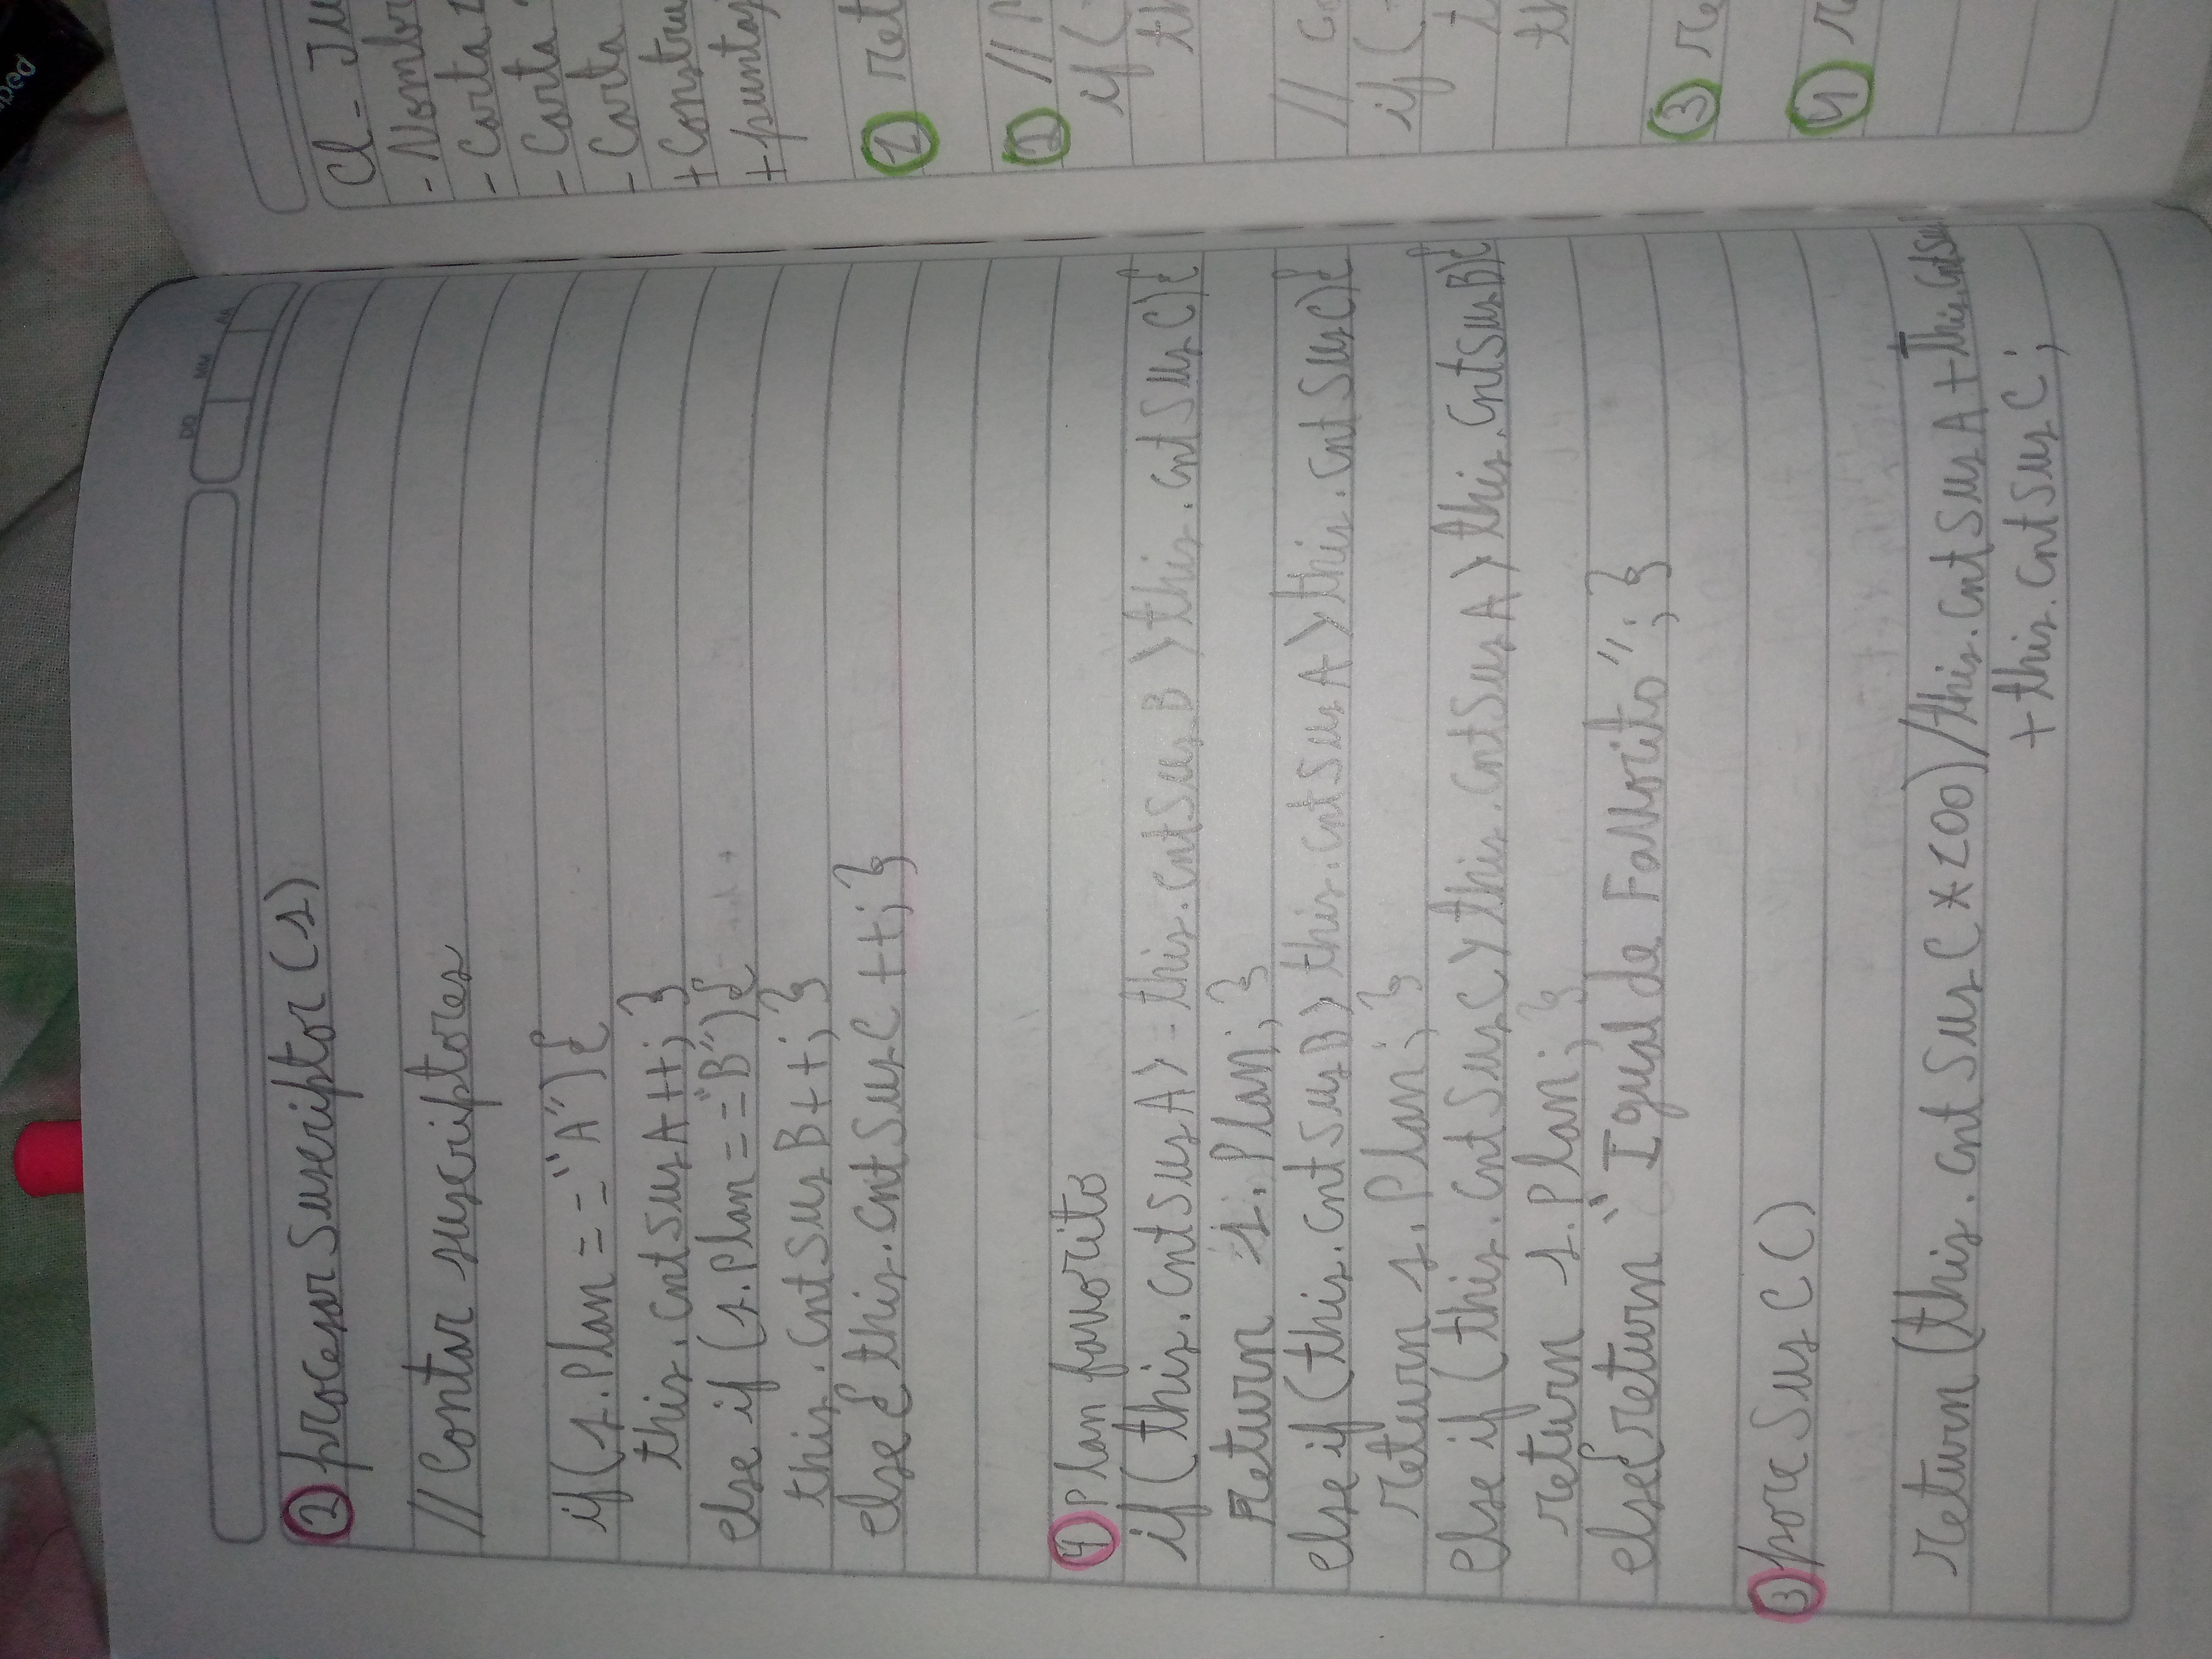 DD MM AA
② procesarSuscriptor(s)
// Contar suscriptores
if(s.Plan=="A"){
this.cntSusA++; }
else if (s.Plan=="B"){
this.cntSusB++; }
else{ this.cntSusC++; }
④ Plan favorito
if(this.cntSusA>=this.cntSusB>this.cntSusC){
return s.Plan; }
else if(this.cntSusB>this.cntSusA>this.cntSusC){
return s.Plan; }
else if(this.cntSusC>this.cntSusA>this.cntSusB){
return s.Plan; }
else{return "Igual de Favorito"; }
③ porcSusC()
return (this.cntSusC*100)/this.cntSusA+this.cntSus
+this.cntSusC;
Cl-
-
- Carta 1
- Carta
- Carta
+
+
①
② //
if(
//
if(
③
④